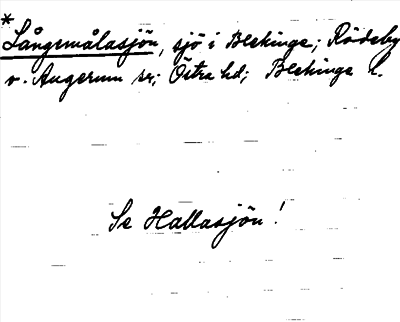 *
Långemålasjön, sjö i Blekinge; Rödeby
o. Augerum sr; Östra hd; Blekinge l.
Se Hallasjön!